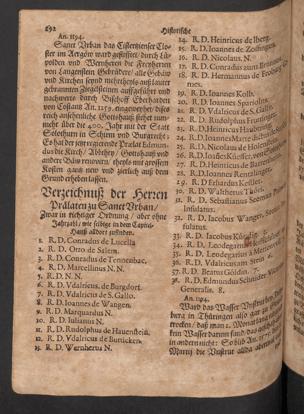 692
Historische
An. 1194.
Sanct Urban das Cistertzienser Clo-
ster im Argöw ward gestifftet: von Ul-
rich und Wernhern die Freyherren
von Langenstein Gebrüder/ alle Gebäw
und Kirchen seynd mehrtheils auß lauter
gebrannten Ziegelsteinen auffgeführt und
nachwerts durch Bischoff Eberharden
von Costantz An. 1259. eingeweyhet
reich ansehenliche Gottshauß stehet nun-
mehr über die 400. Jahr mit der Statt
Solothurn in Schirm und Burgrecht:
Es hat der jetzt regierende Prælat Edmun-
dus die Kirch/ Abbthey/ Gottshauß und
andere Bäw renoviert/ theyls mit grossem
Kosten gantz new und zierlich auß dem
Grund erheben lassen.
Verzeichnuß der Herren
Prælaten zu Sanct Urban/
Zwar in richtiger Ordnung/ aber ohne
Jahrzahl/ wie selbige in dem Capitel-
Hauß alldort zusehen.
1. R. D. Conradus de Lucella
2. R. D. Otto de Salem.
3. R. D. Conradus de Tennenbac.
4. R. D. Marcellinus N. N.
5. R. D. N. N.
6. R. D. Vdalricus, de Burgdorf.
7. R. D. Vdalricus de S. Gallo.
8. R. D. Ioannes de Wangen.
9. R. D. Marquardus N.
10. R. D. Iulianus N.
11. R. D. Rudolphus de Hauenstein.
12. R. D. Vdalricus de Butticken.
13. R. D. Wernherus N.
14. R. D. Heinricus de Iberg.
15. R. D. Ioannes de Zoffingen.
16. R. D. Nicolaus, N.
17. R. D. Conradus zum Brunnen.
18. R. D. Hermannus de Froburg Co-
mes.
19. R. D. Ioannes Kolb.
20. R. D. Ioannes Spariolin.
21. R. D. Vdalricus de S. Gallo.
22. R. D. Rudolphus Frutinger.
23. R. D. Heinricus Hauptinger
24. R. D. Ioannes Marti
25. R. D. Nicolaus de Holstein.
26. R. D. Ioānes Kīeffer,
27. R. D. Heinricus de Baren
28. R. D. Ioannes Rentalinger.
29. R D Erhardus Kestler.
30. R. D. Waltherus Thörs.
31. R. D. Sebastianus Seeman
Infulatus.
32. R. D. Iacobus Wanger,
sulatus.
33. R. D. Iacobus
34. R. D. Leodegarius
35. R. D. Leodegarius
36. R. D. Vdalricus am Stein
37. R. D. Beatus Göldin.
38. R. D. Edmundus Schnider Vicarius
Generalis.
An. 1194.
Ward das Wasser Unstrut bey
burg in Thüringen also gar
trocken/ daß man 2. Monat lang
kein Wasser darinn fand/
in anderen nicht: So
Martij die Unstrut